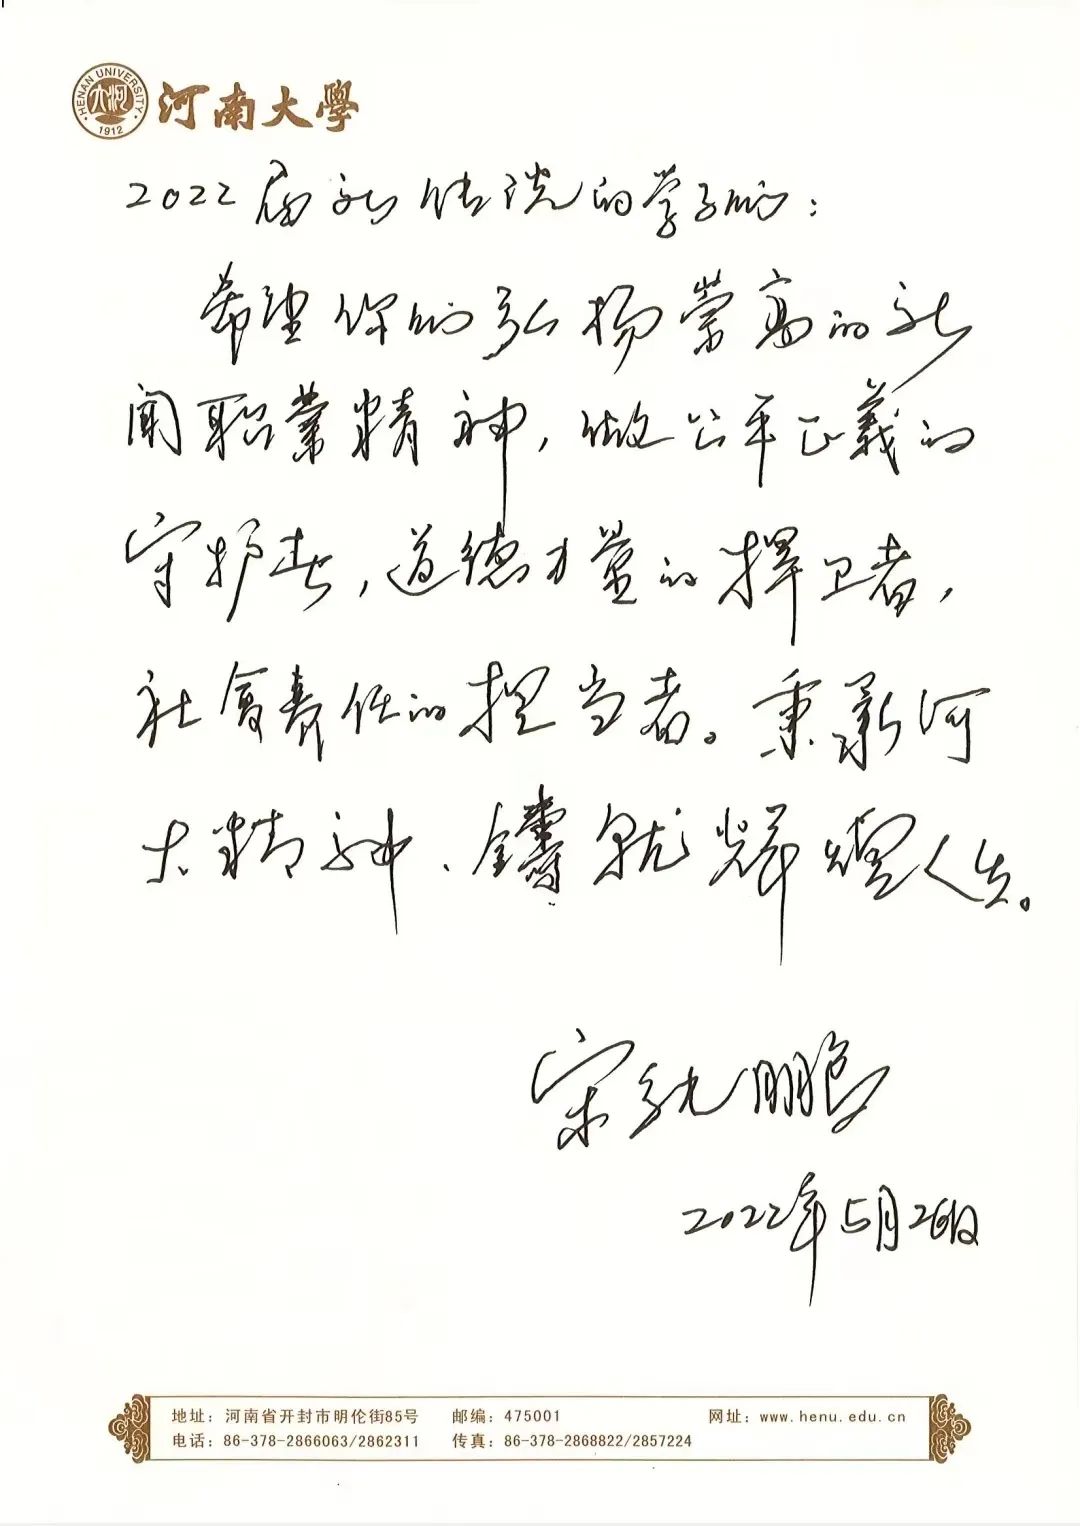 HENAN UNIVERSITY
大河
1912
河南大學
2022届新传院的学子们：
希望你们弘扬崇高的新
闻职业精神，做公平正義的
守护者，道德力量的捍卫者，
社會责任的担当者。秉承河
大精神、鑄就辉煌人生。
宋 鹏
2022年5月26日
地址：河南省开封市明伦街85号 邮编：475001 网址：www.henu.edu.cn
电话：86-378-2866063/2862311 传真：86-378-2868822/2857224